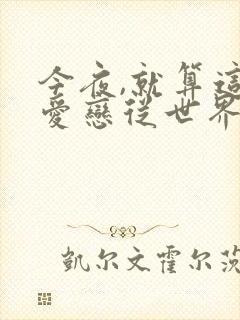 今夜,就算這
愛戀從世界
凱尔文霍尔茨